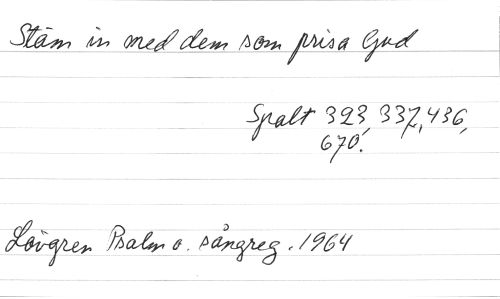 Stäm in med dem som prisa Gud
Spalt 323, 337, 436,
670.
Lövgren Psalm o. sångreg. 1964